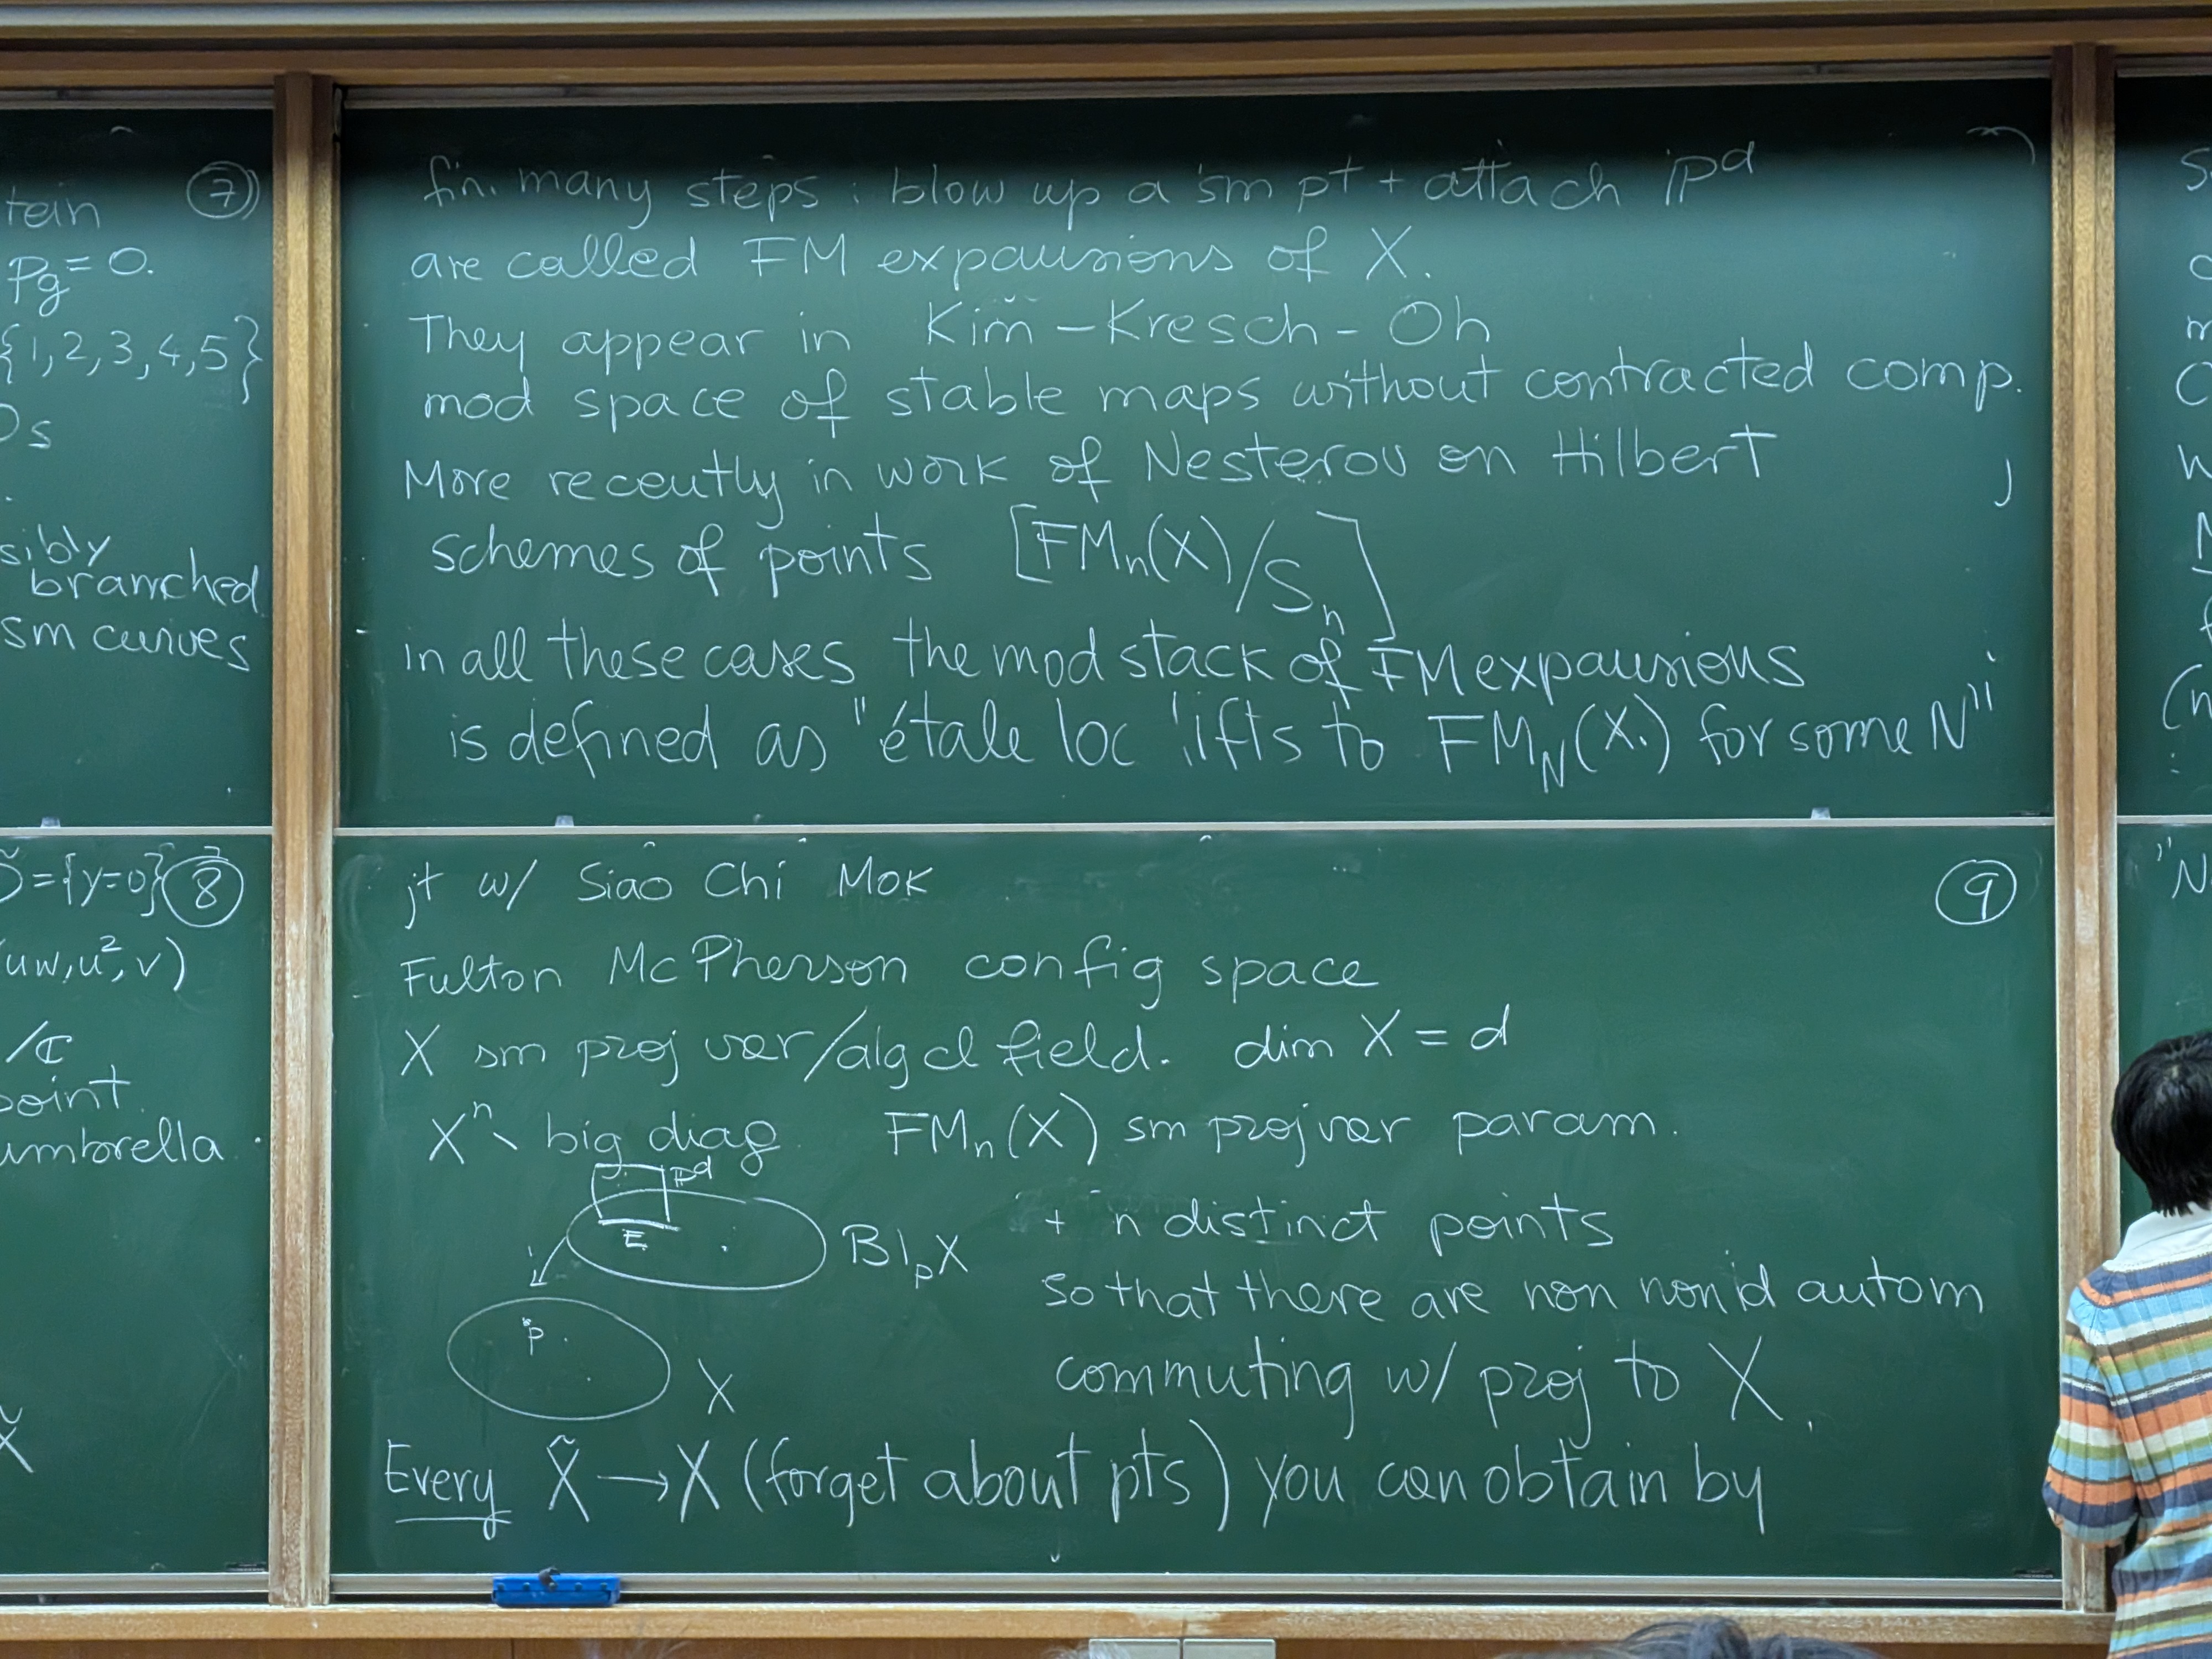 tein ⑦
pg = 0.
{1,2,3,4,5}
sibly
branched
sm curves
fin. many steps : blow up a sm pt + attach ℙᵈ
are called FM expansions of X.
They appear in Kim – Kresch – Oh
mod space of stable maps without contracted comp.
More recently in work of Nesterov on Hilbert
schemes of points [FMₙ(X)/Sₙ]
in all these cases the mod stack of FM expansions
is defined as "étale loc lifts to FM_N(X) for some N"
={y=0} ⑧
(uw, u², v)
/ℂ
point
umbrella.
X̃
jt w/ Siao Chi Mok ⑨
Fulton McPherson config space
X sm proj var/alg cl field. dim X = d
Xⁿ \ big diag FMₙ(X) sm proj var param.
ℙᵈ
E
Bl_p X + n distinct points
so that there are non non id autom
p
X
commuting w/ proj to X.
Every X̃ → X (forget about pts) you can obtain by
"N